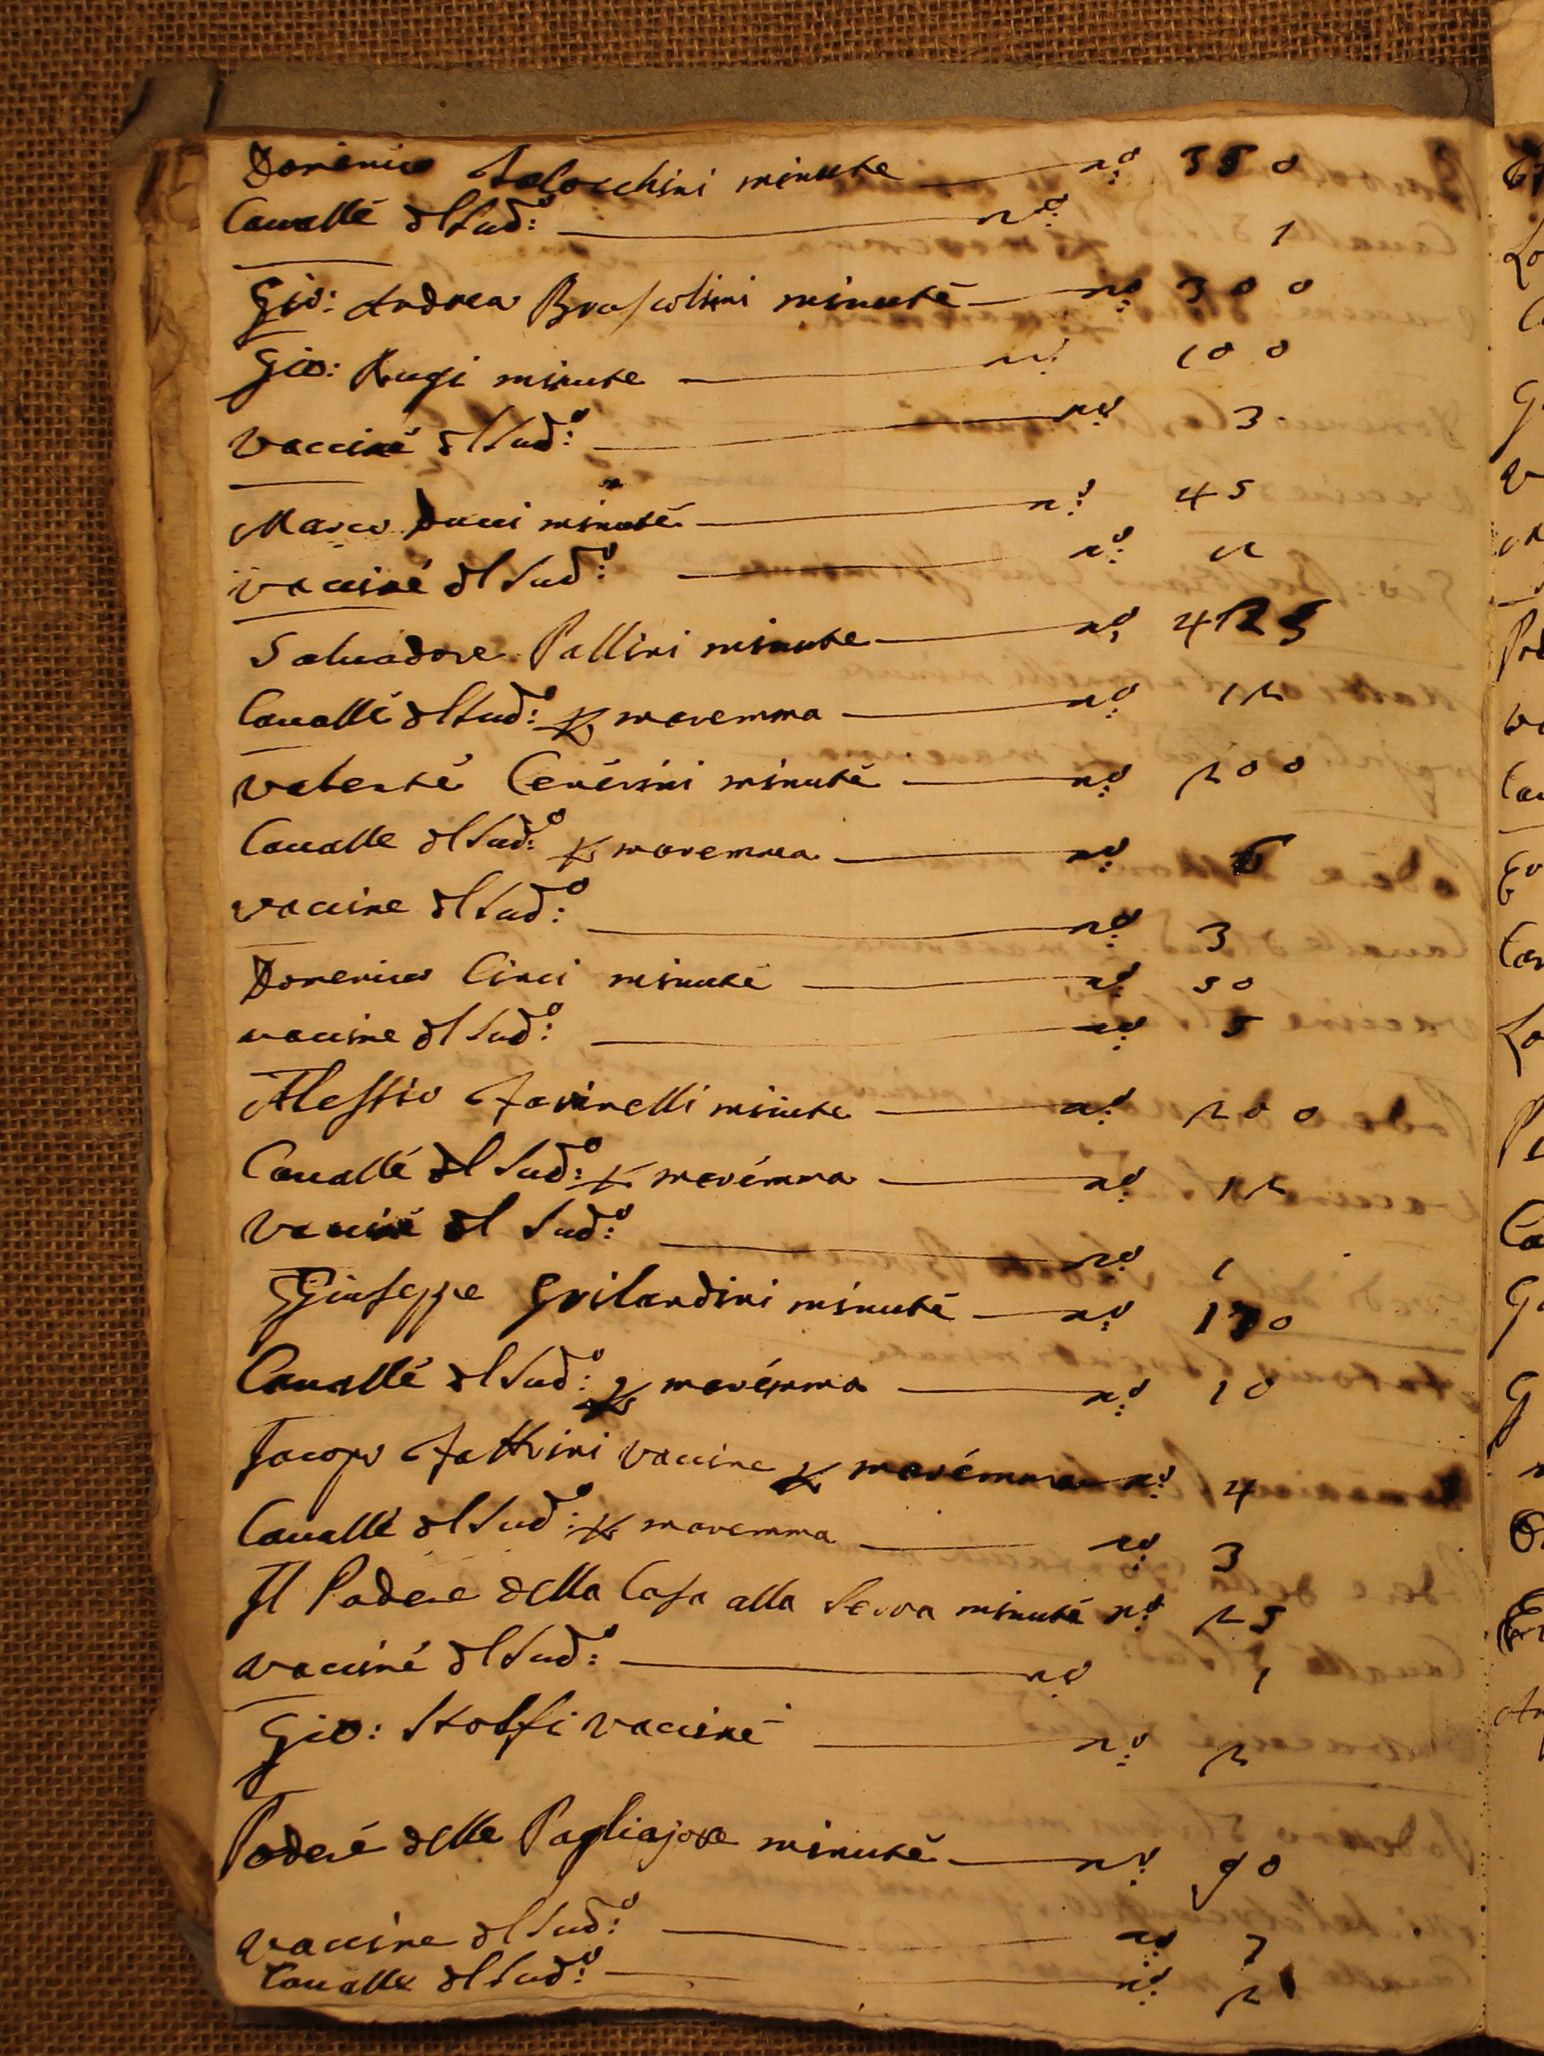 Domenico Falocchini minute nº: 350
Cavalle dl Sudº: nº: 1
Gio: Andrea Bruscolini minute nº 300
Gio: Rugi minute nº: 100
vaccine dl Sudº: nº 3
Marco Ducci minute nº: 45
vaccine dl Sudº: nº: 2
Salvadore Pallini minute nº: 425
Cavalle dl Sudº: p maremma nº: 12
valente Cenérini minute nº: 200
Cavalle dl Sudº: p maremma nº 6
vaccine dl Sudº: nº: 3
Domenico Cinci minute nº: 50
vaccine dl Sudº: nº: 5
Alessio Farinelli minute nº: 200
Cavalle dl Sudº: p maremma nº: 12
vaccine dl Sudº: nº: 1
Giuseppe Grilandini minute nº: 170
Cavalle dl Sudº: p maremma nº: 10
Jacopo Fattrini vaccine p maremma nº: 4
Cavalle dl Sudº: p maremma nº: 3
Il Podere della Casa alla Serra minute nº: 25
vaccine dl Sudº: nº 1
Gio: Stolfi vaccine nº: 2
Podere delle Pagliajole minute nº: 90
vaccine dl Sudº: nº: 7
Cavalle dl Sudº: nº: 2